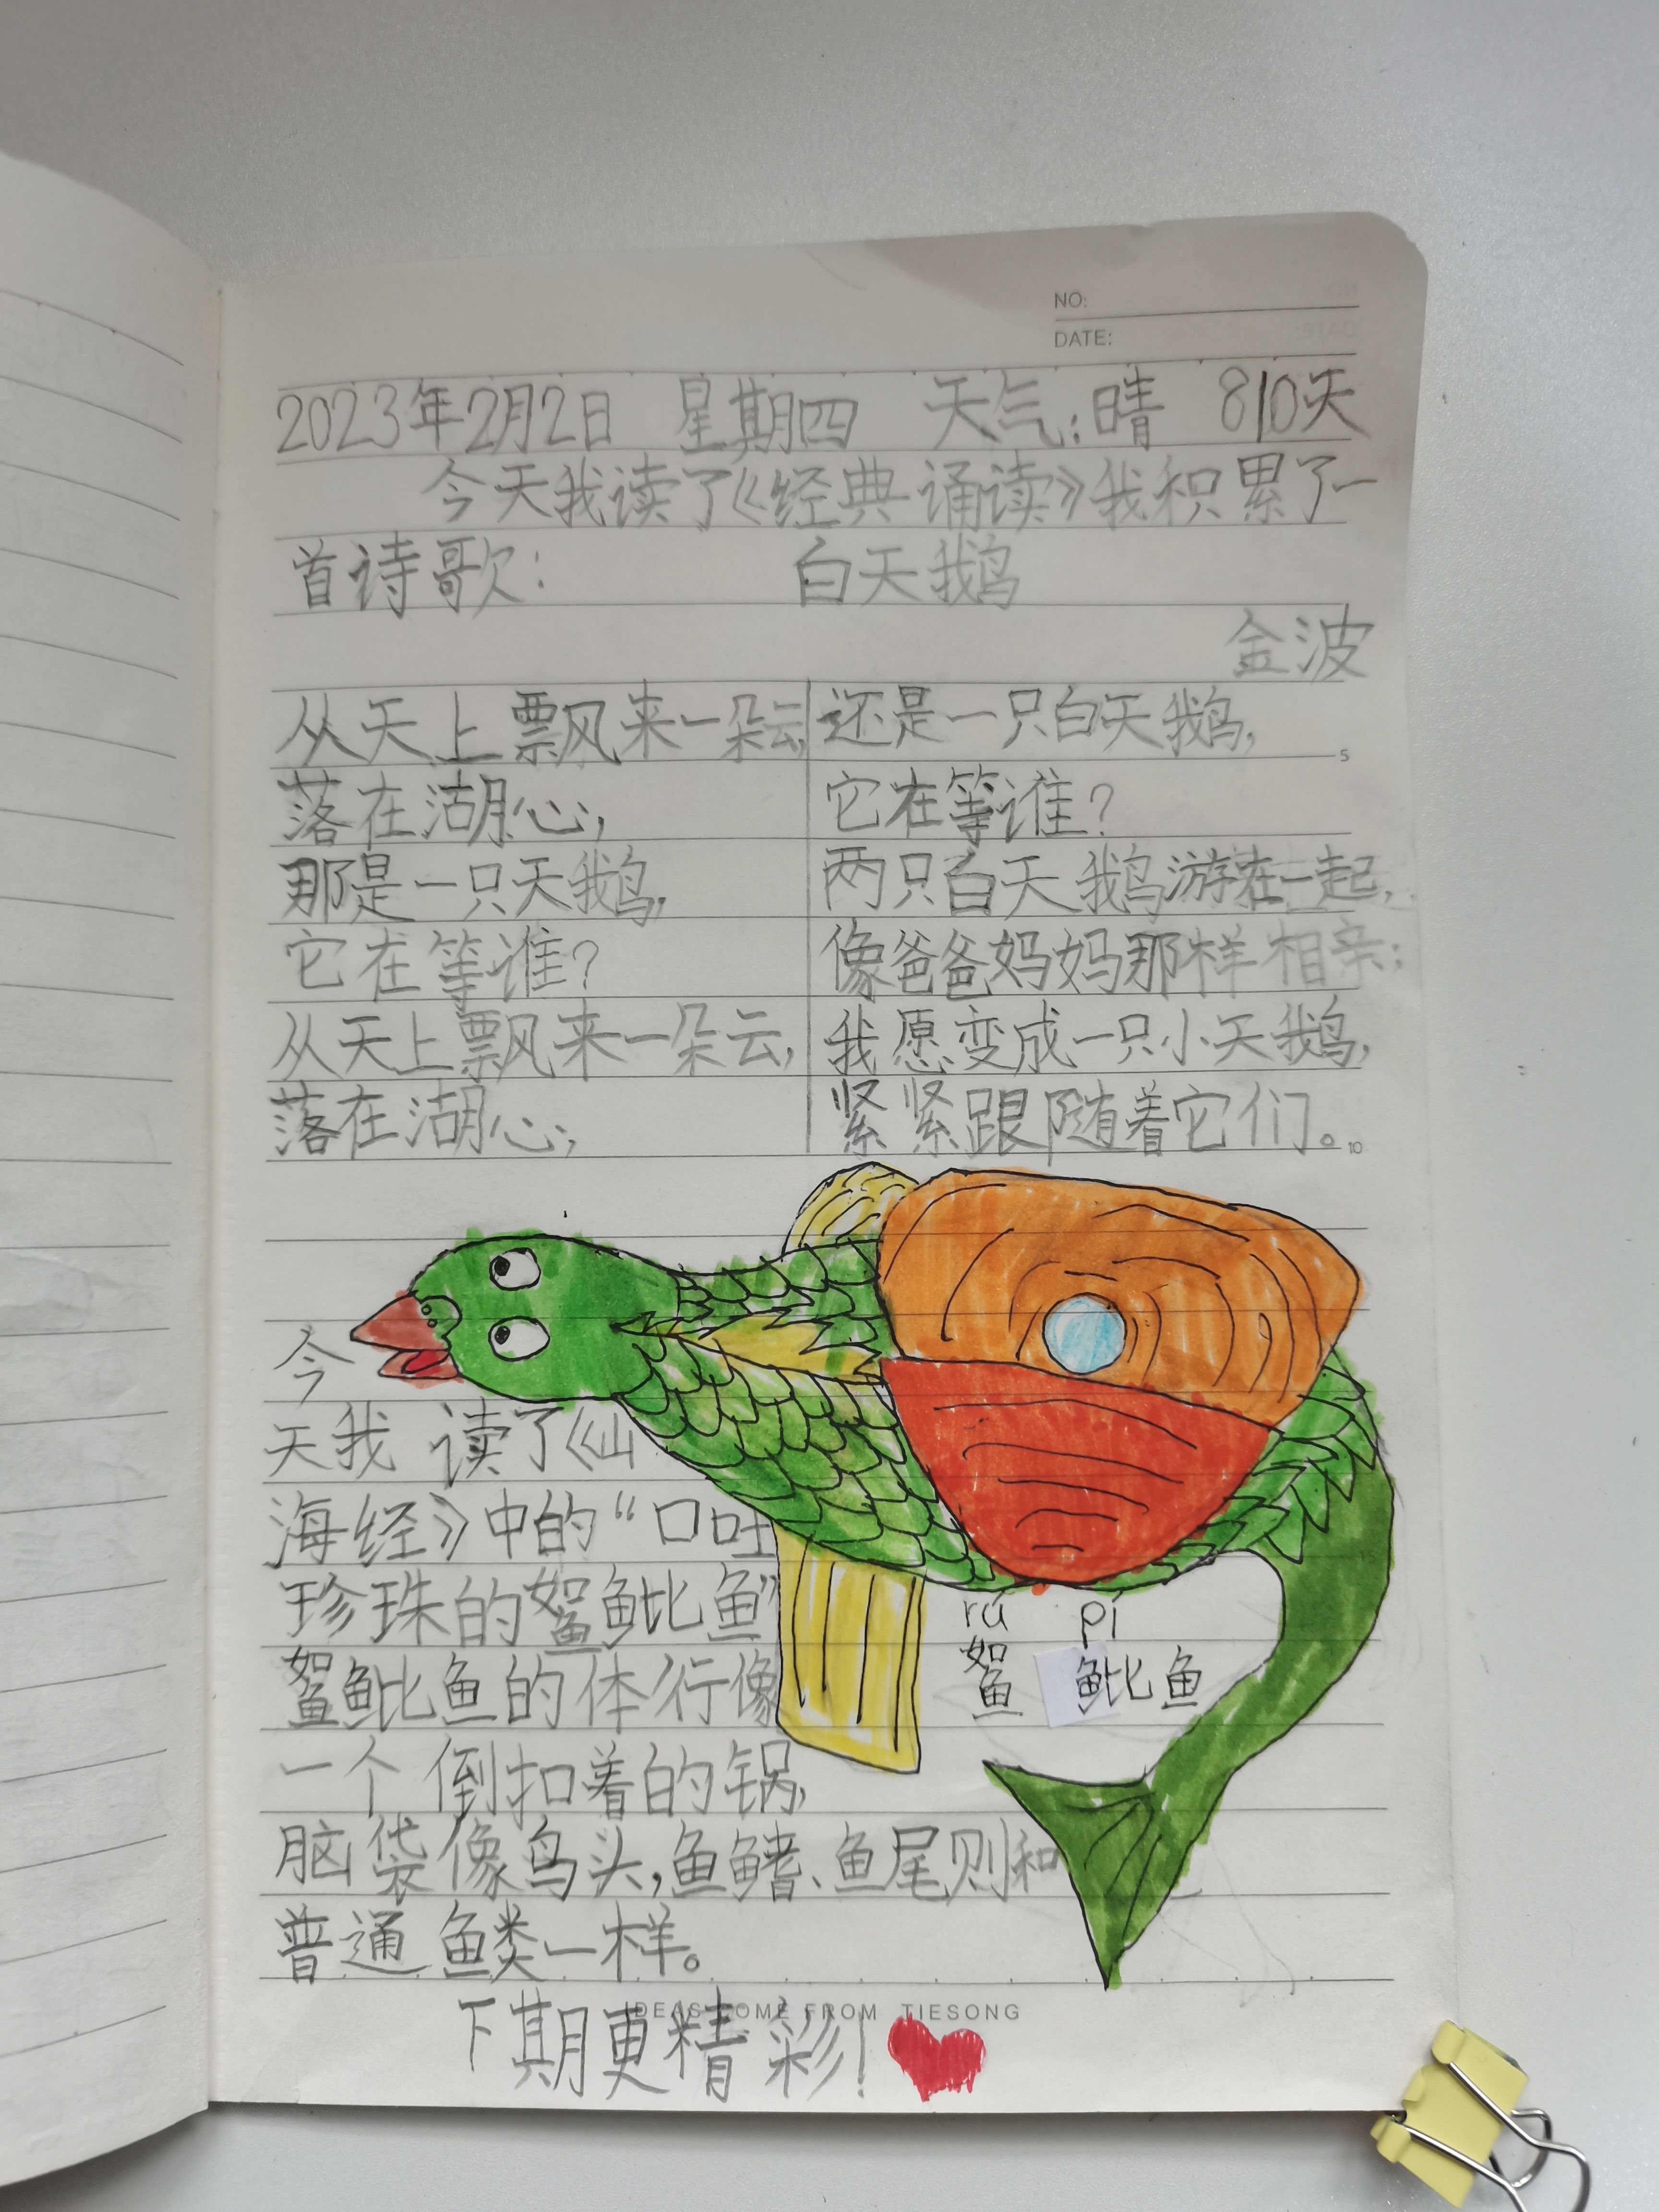 NO:
DATE:
2023年2月2日 星期四 天气:晴 810天
今天我读了《经典诵读》我积累了一
首诗歌: 白天鹅
金波
从天上飘来一朵云,
落在湖心;
那是一只天鹅,
它在等谁?
从天上飘来一朵云,
落在湖心;
还是一只白天鹅,
它在等谁?
两只白天鹅游在一起,
像爸爸妈妈那样相亲;
我愿变成一只小天鹅,
紧紧跟随着它们。
5
10
今
天我读了《山
海经》中的“口吐
珍珠的䱯魮鱼”
䱯魮鱼的体行像
一个倒扣着的锅,
脑袋像鸟头,鱼鳍、鱼尾则和
普通鱼类一样。
rú pí
䱯魮鱼
下期更精彩!
IDEAS COME FROM TIESONG